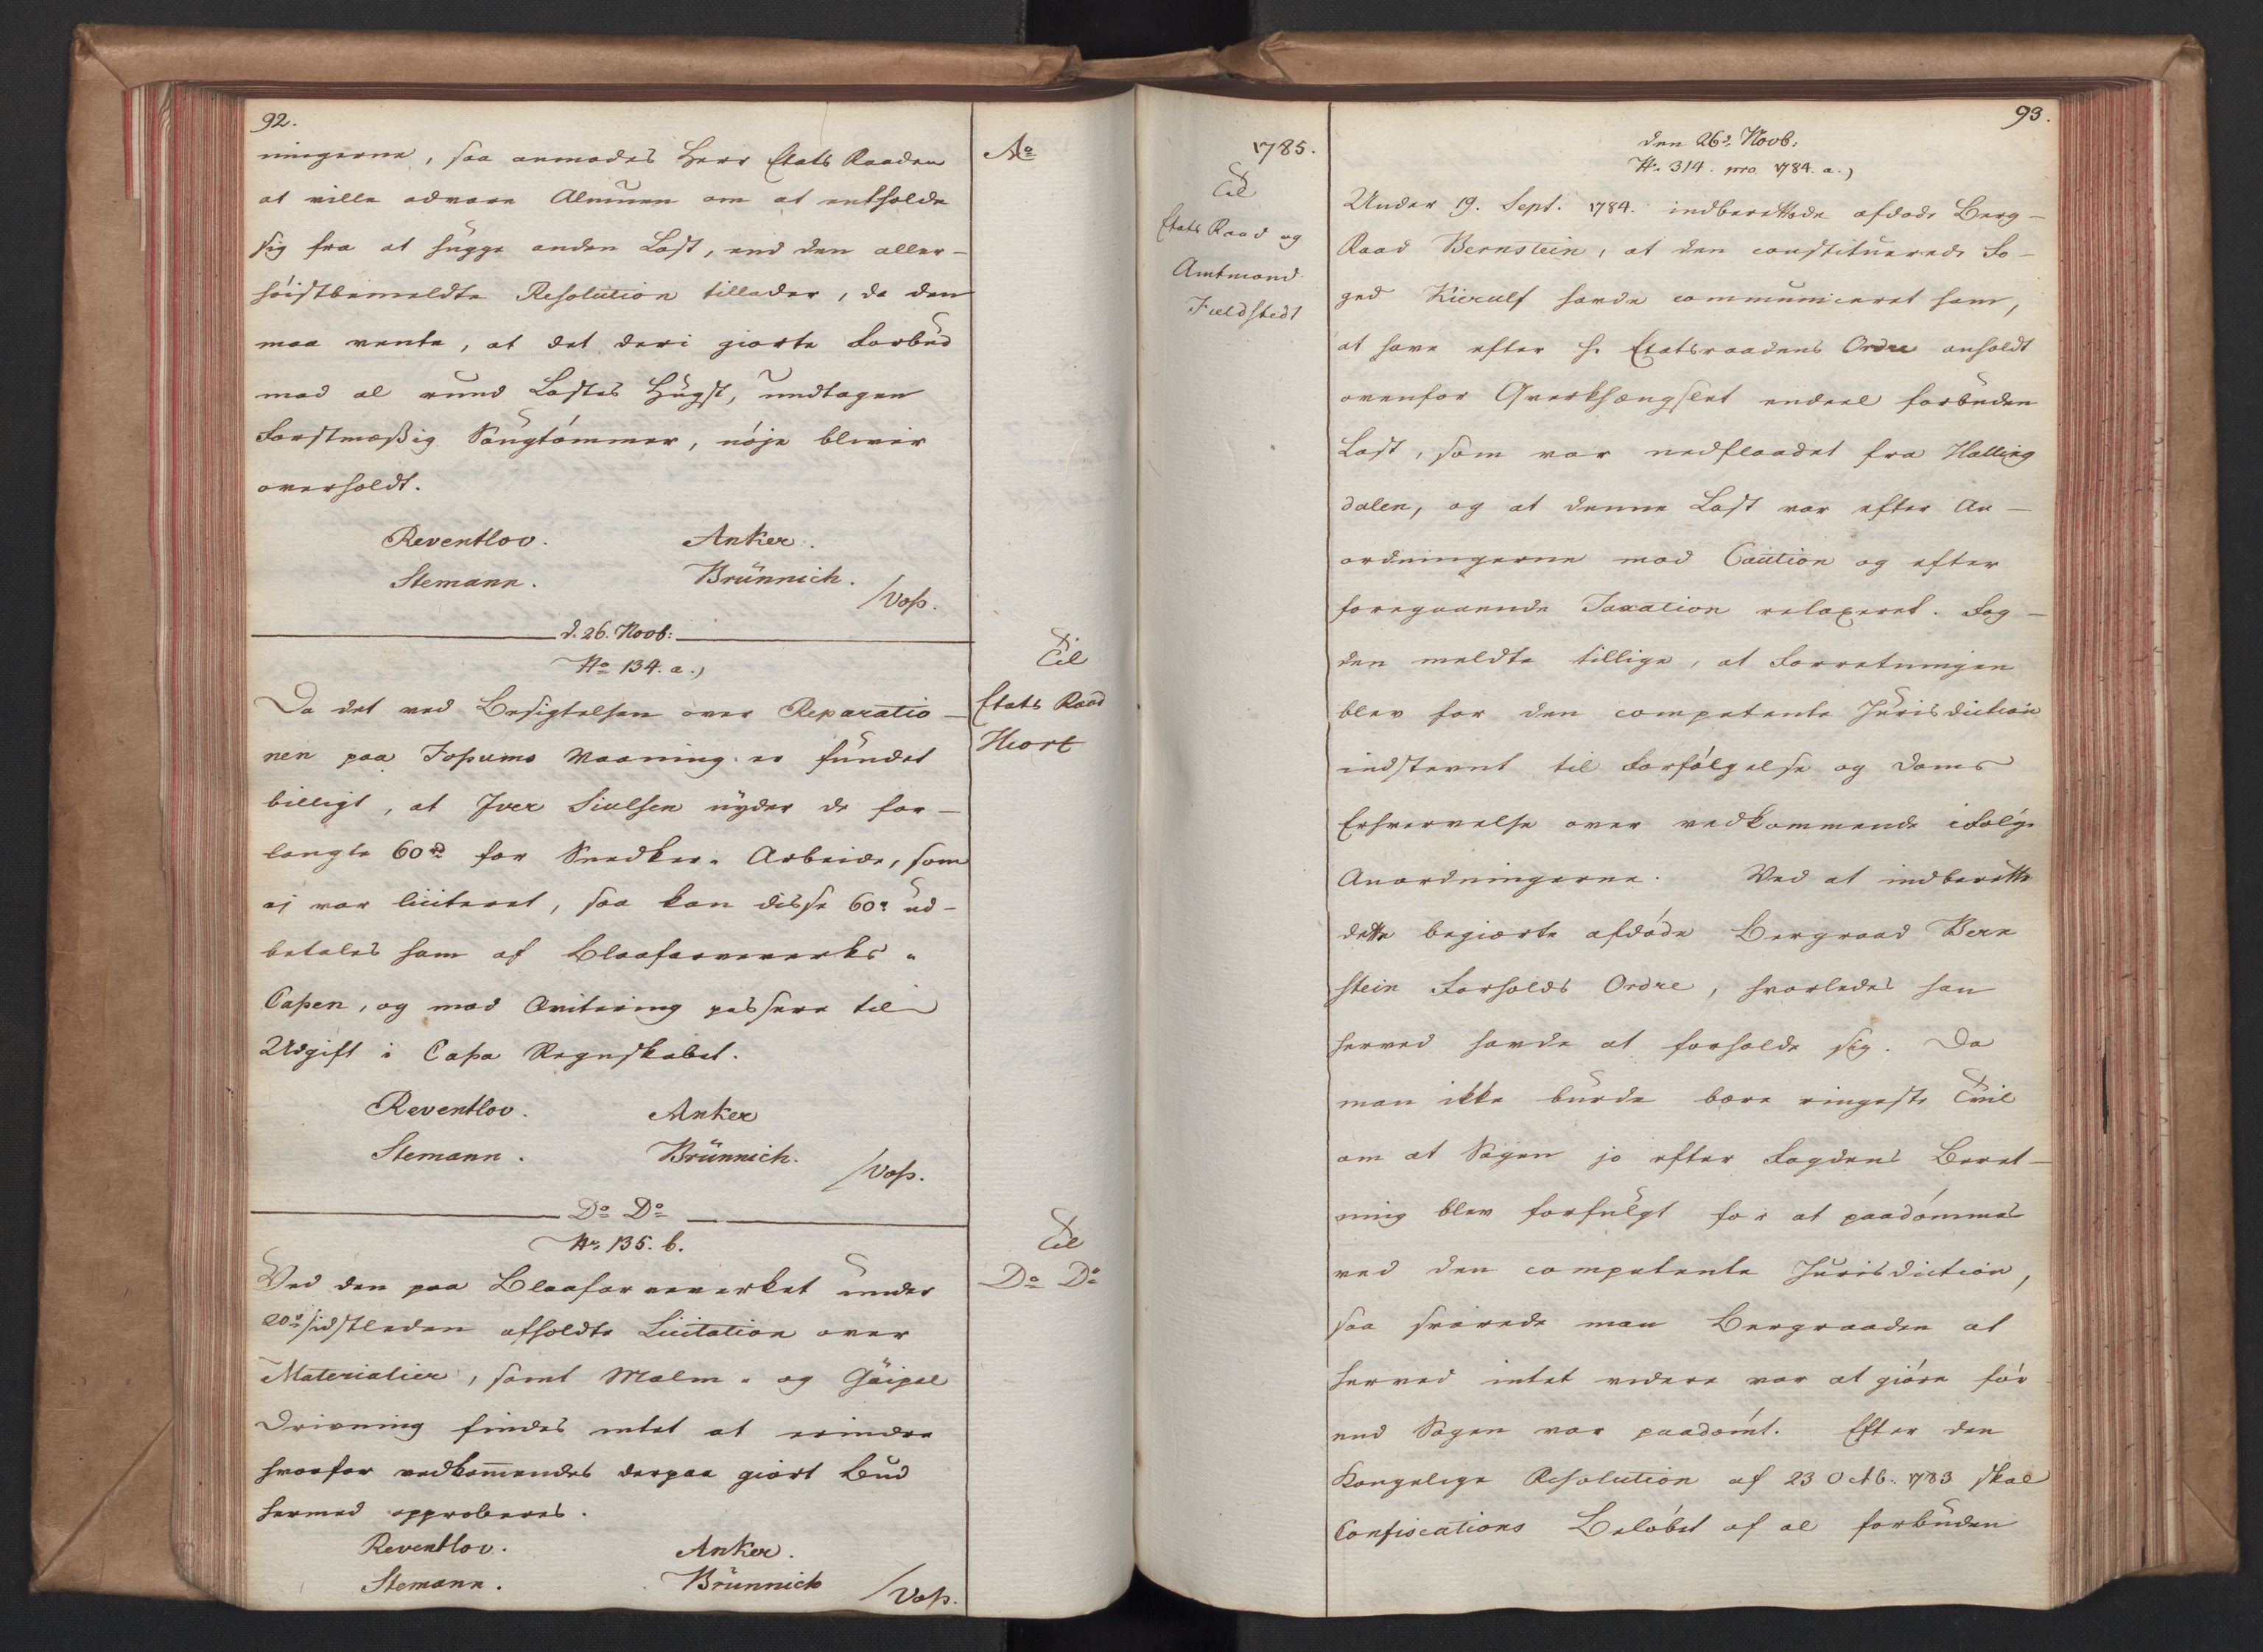 92.
ningerne, saa anmodes Herr Etats Raaden
at ville advare Almuen om at entholde
sig fra at hugge anden Last, end den aller-
høistbemeldte Resolution tillader, da den
maa vente, at det deri giorte Forbud
mod al rund Lastes Hugst, undtagen
Forstmæssig Saugtømmer, nøje bliver
overholdt.
Reventlov. Anker.
Stemann. Brünnich.
/Voss.
d. 26. Novb:
No 134. a.)
Da det ved Besigtelsen over Reparatio-
nen paa Fossums Vaaning er fundet
billigt, at Iver Siulsen nyder de for-
langte 60 rd for Snedker-Arbeide, som
ej var liciteret, saa kan disse 60 r ud-
betales ham af Blaafarveverks-
Cassen, og mod Qvitering passere til
Udgift i Cassa Regnskabet.
Reventlov. Anker
Stemann. Brünnich.
/Voss.
Do Do
No 135. b.
Ved den paa Blaafarveverket under
20de sidstleden afholdte Licitation over
Materialier, samt Malm- og Gäipel
Drivning findes intet at erindre
hvorfor vedkommendes derpaa giort Bud
hermed approberes.
Reventlov. Anker.
Stemann. Brünnich
/Voss.
Ao
Til
Etats Raad
Hiort
Til
Do Do
1785.
Til
Etats Raad og
Amtmand
Fieldstedt
93.
den 26de Novb:
No 314. pro 1784. a.)
Under 19. Sept. 1784. indberettede afdøde Berg-
Raad Bernstein, at den constituerede Fo-
ged Kierulf havde communiceret ham,
at have efter H. Etatsraadens Ordre anholdt
ovenfor Qverkhængslet endeel forbuden
Last, som var nedflaadet fra Halling
dalen, og at denne Last var efter An-
ordningerne mod Caution og efter
foregaaende Taxation relaxeret. Fog-
den meldte tillige, at Forretningen
blev for den competente Jurisdiction
indstevnt til Forfølgelse og Doms
Erhvervelse over vedkommende ifølge
Anordningerne. Ved at indberette
dette begierte afdøde Bergraad Bern
stein Forholds Ordre, hvorledes han
herved havde at forholde sig. Da
man ikke burde bære ringeste Tvil
om at Sagen jo efter Fogdens Beret-
ning blev forfulgt for at paadømmes
ved den competente Jurisdiction,
saa svarede man Bergraaden at
herved intet videre var at giøre før
end Sagen var paadømt. Efter den
Kongelige Resolution af 23 Octb. 1783 skal
Confiscations Beløbet af al forbuden